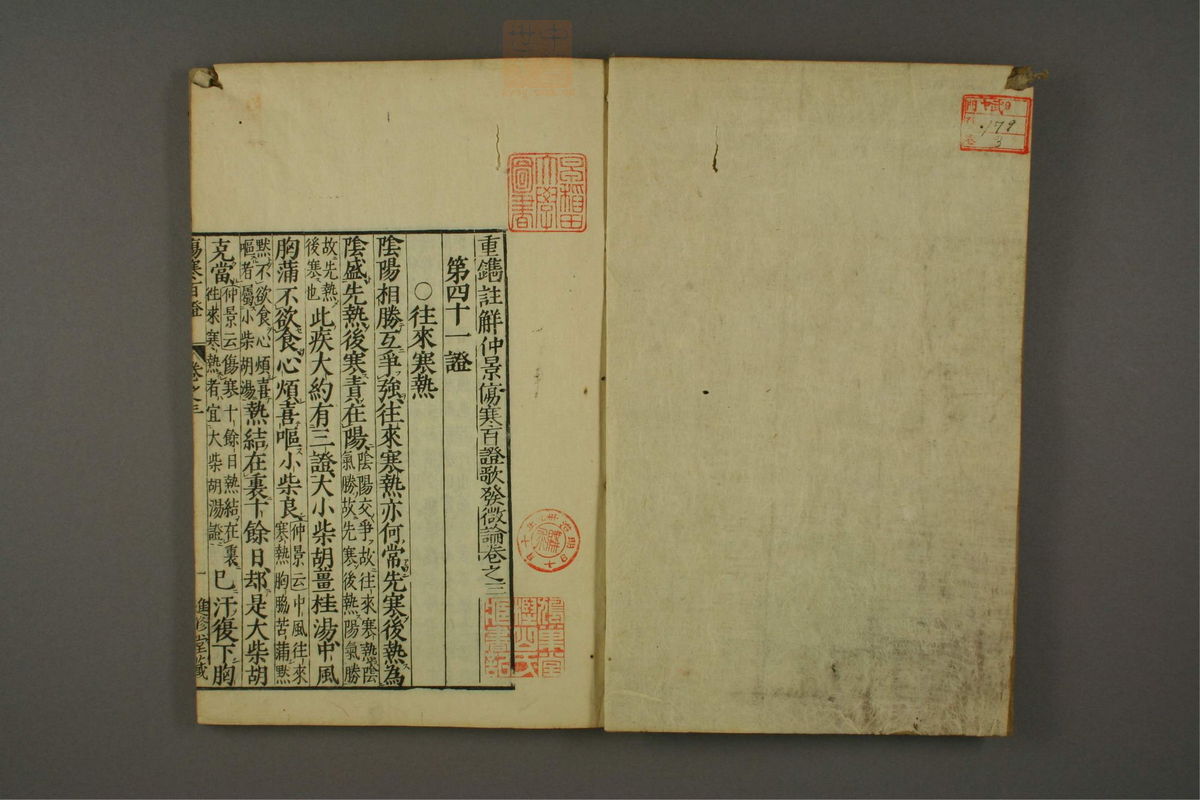 重鐫註解仲景傷寒百證歌發微論卷之三
第四十一證
○往來寒熱
陰陽相勝互爭強往來寒熱亦何常先寒後熱為
陰盛先熱後寒責在陽陰陽交爭故往來寒熱陰氣勝故先寒後熱陽氣勝
故先熱後寒也此疾大約有三證大小柴胡薑桂湯中風
胸滿不欲食心煩喜嘔小柴良仲景云中風往來寒熱胸脇苦滿默
默不欲食心煩喜嘔者屬小柴胡湯熱結在裏十餘日却是大柴胡
克當仲景云傷寒十餘日熱結在裏往來寒熱者宜大柴胡湯證已汗復下胸
傷寒百證 卷之三 一
早稻田大學圖書
179
3